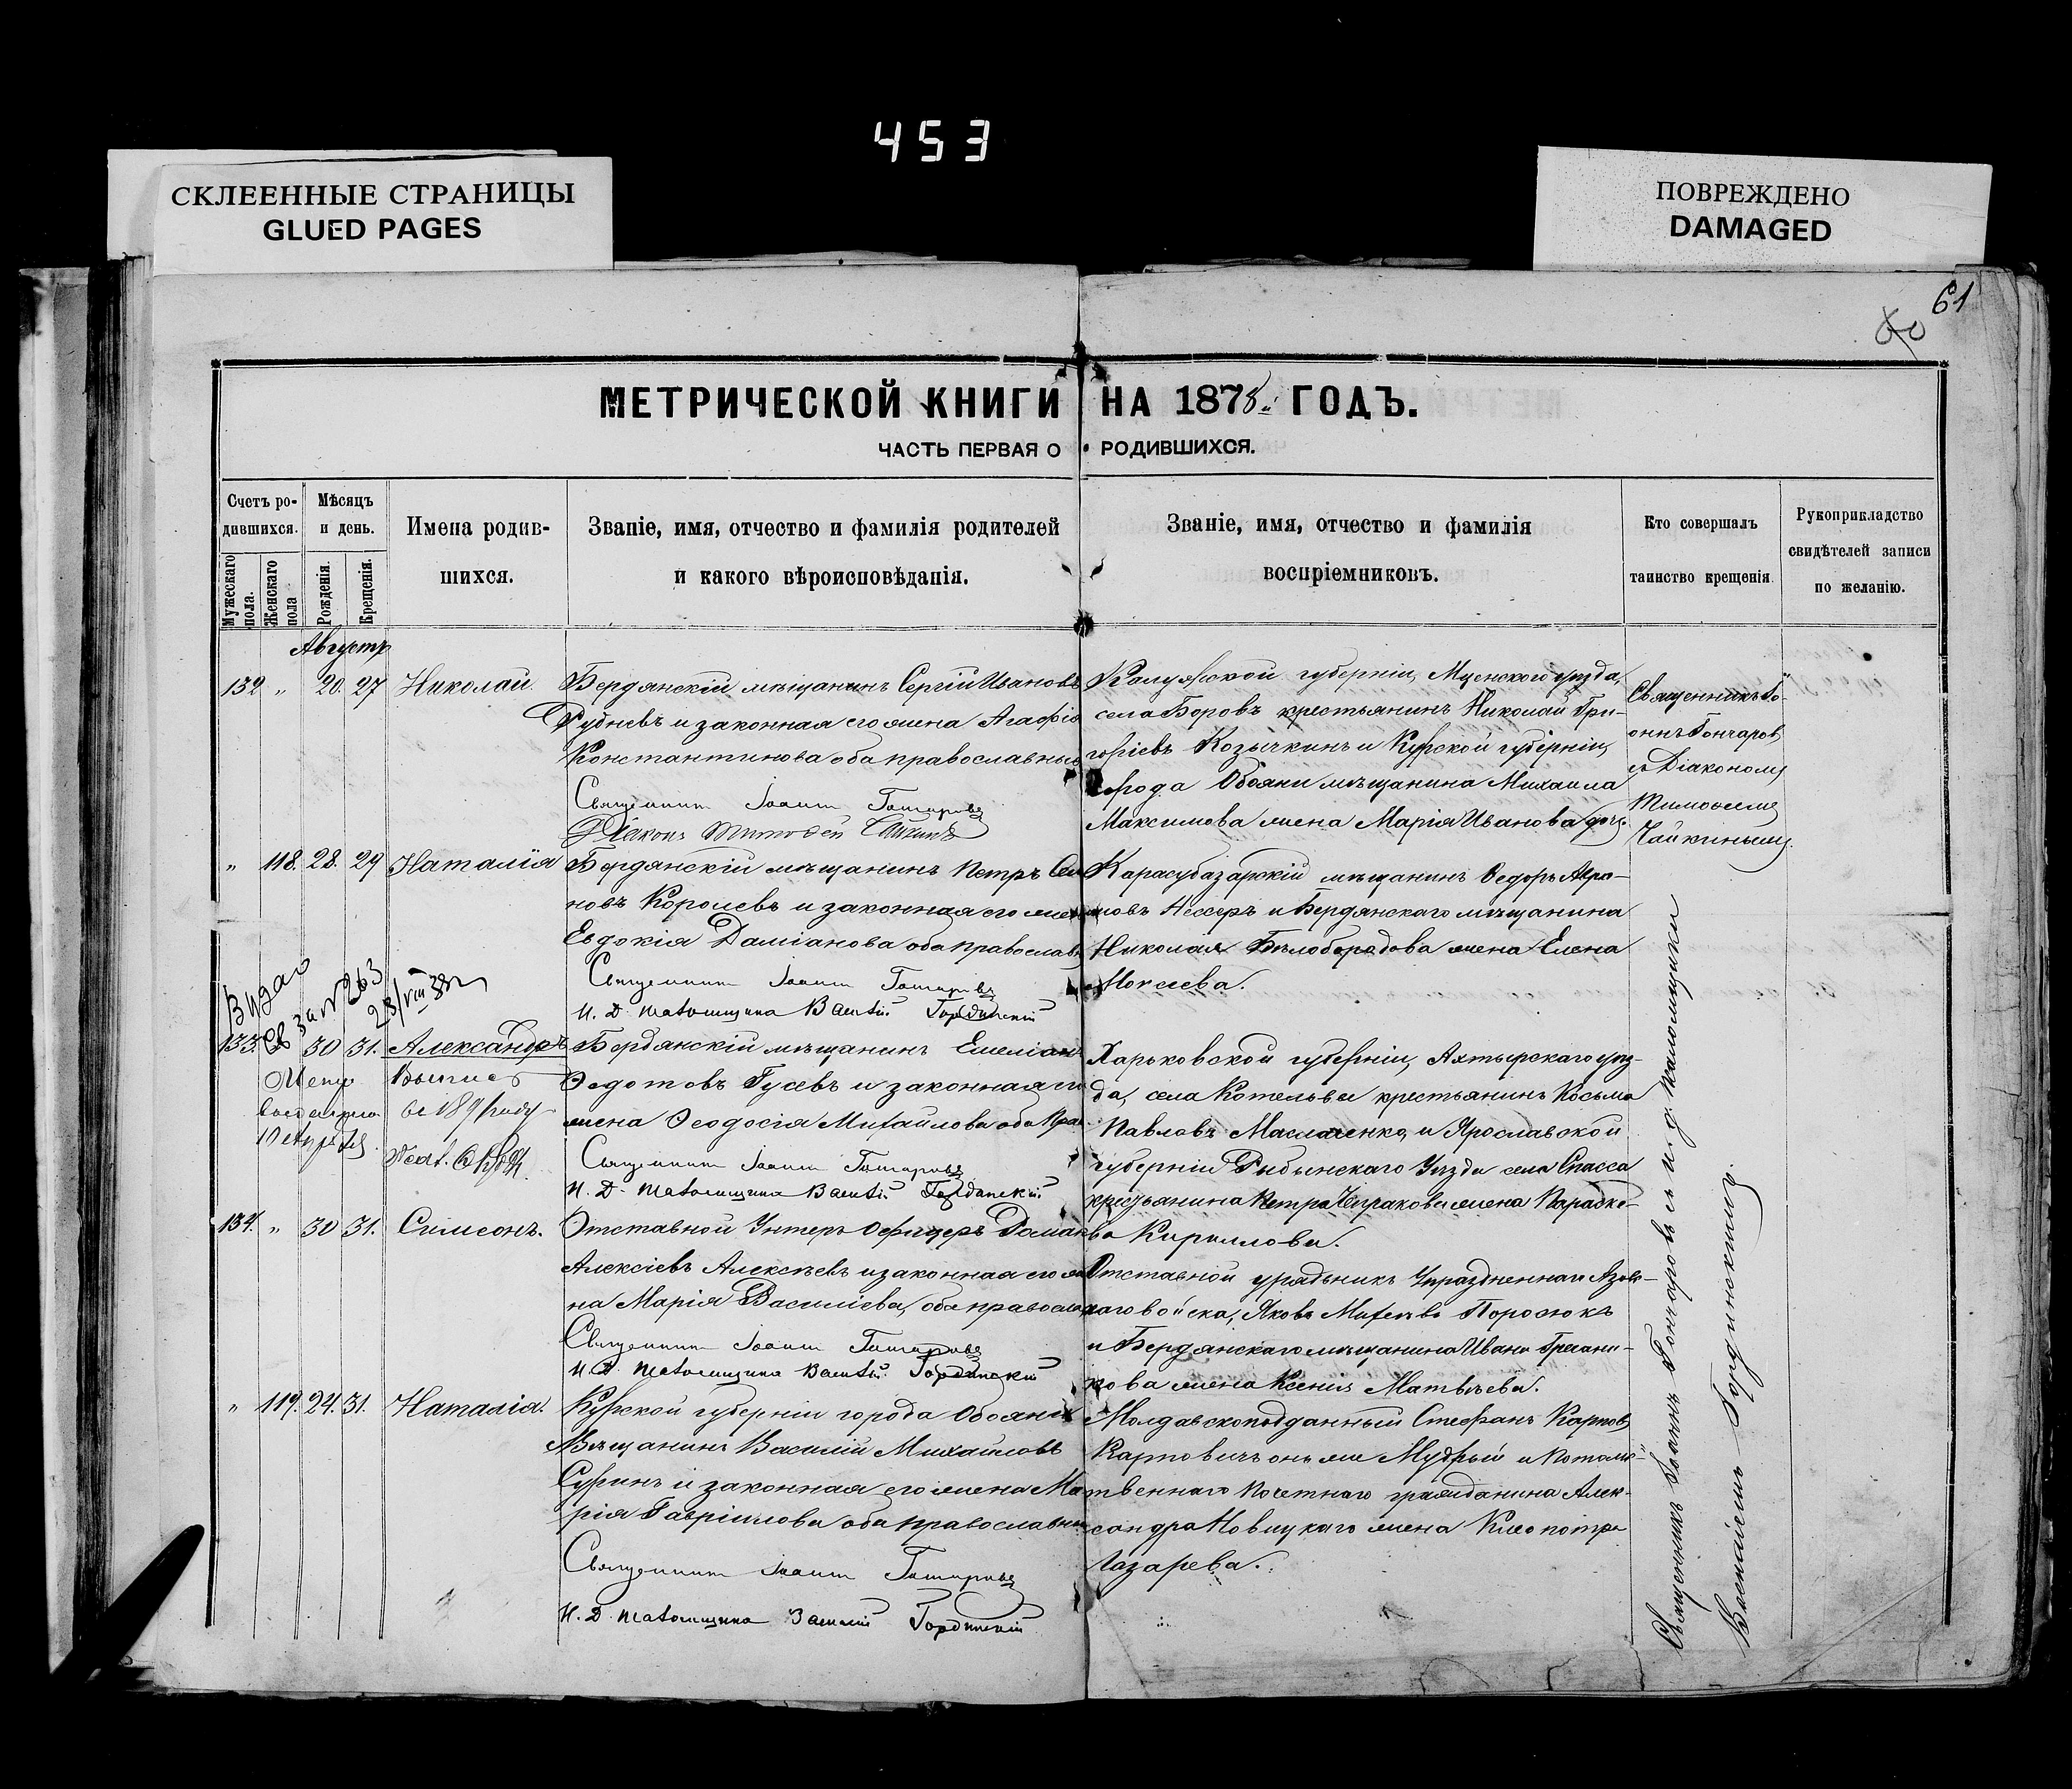 453
СКЛЕЕННЫЕ СТРАНИЦЫ
GLUED PAGES
ПОВРЕЖДЕНО
DAMAGED
61
МЕТРИЧЕСКОЙ КНИГИ НА 1878й ГОДЪ.
ЧАСТЬ ПЕРВАЯ О РОДИВШИХСЯ.
Счетъ ро-
дившихся.
Мужескаго
пола.
Женскаго
пола
Мѣсяцъ
и день.
Рожденія.
Крещенія.
Имена родив-
шихся.
Званіе, имя, отчество и фамилія родителей
и какого вѣроисповѣданія.
Званіе, имя, отчество и фамилія
воспріемниковъ.
Кто совершалъ
таинство крещенія
Рукоприкладство
свидѣтелей записи
по желанію.
Августъ
132 „ 20. 27 Николай.
Бердянскій мѣщанинъ Сергій Ивановъ
Рубневъ и законная его жена Агафія
Константинова оба православные
Священникъ Іоаннъ Гончаровъ
Діаконъ Тимофей Чайкинъ
Калужской губерніи, Мценского уѣзда,
села Боровъ крестьянинъ Николай Гри-
горіевъ Козычкинъ и Курской губерніи,
города Обояни мѣщанина Михаила
Максимова жена Марія Иванова дочь.
Священникъ Іо-
аннъ Гончаровъ
съ Діакономъ
Тимофеемъ
Чайкинымъ.
„ 118. 28. 29 Наталія
Бердянскій мѣщанинъ Петръ
новъ Королевъ и законная его жена
Евдокія Даміанова оба православн
Священникъ Іоаннъ Гончаровъ
И. Д. Псаломщика Василій Гординскій
Карасубазарскій мѣщанинъ Ѳедоръ Авра-
мовъ и Бердянскаго мѣщанина
Николая Бѣлобородова жена Елена
Мокеева.
за № 263
23/VIII 33
133. 30 31. Александръ
Бердянскій мѣщанинъ Емеліанъ
Ѳедотовъ Гусевъ и законная его
жена Ѳеодосія Михайлова оба прав
Священникъ Іоаннъ Гончаровъ
И. Д. Псаломщика Василій Гординскій
Харьковской губерніи, Ахтырскаго уѣз-
да, села Котельвы крестьянинъ Косьма
Павловъ Масляненко, и Ярославской
губерніи Рыбынскаго Уѣзда села Спасса
крестьянина Петра Чиракова жена Параске-
ва Кириллова.
134. „ 30 31. Симеонъ.
Отставной Унтеръ Офицеръ Романъ
Алексіевъ Алексѣевъ и законная его же
на Марія Василіева, оба православн
Священникъ Іоаннъ Гончаровъ
И. Д. Псаломщика Василій Гординскій
Отставной урядникъ Упраздненнаго Азов-
скаго войска, Яковъ Порсюкъ
и Бердянскаго мѣщанина Ивана Гречани-
кова жена Ксенія Матвѣева.
„ 119. 24. 31. Наталія.
Курской губерніи города Обояни
Мѣщанинъ Василій Михайловъ
Суринъ и законная его жена Ма
рія Гавріилова оба православные
Священникъ Іоаннъ Гончаровъ
И. Д. Псаломщика Василій Гординскій
Молдавскоподданный Стефанъ Карповъ
Карповичъ онъ же Мудрый и Потомс-
твеннаго Почетнаго гражданина Алек-
сандра Новицкаго жена Клеопатра
Лазарева.
Священникъ Іоаннъ Гончаровъ съ и. д. псаломщика
Василіемъ Гординскимъ.